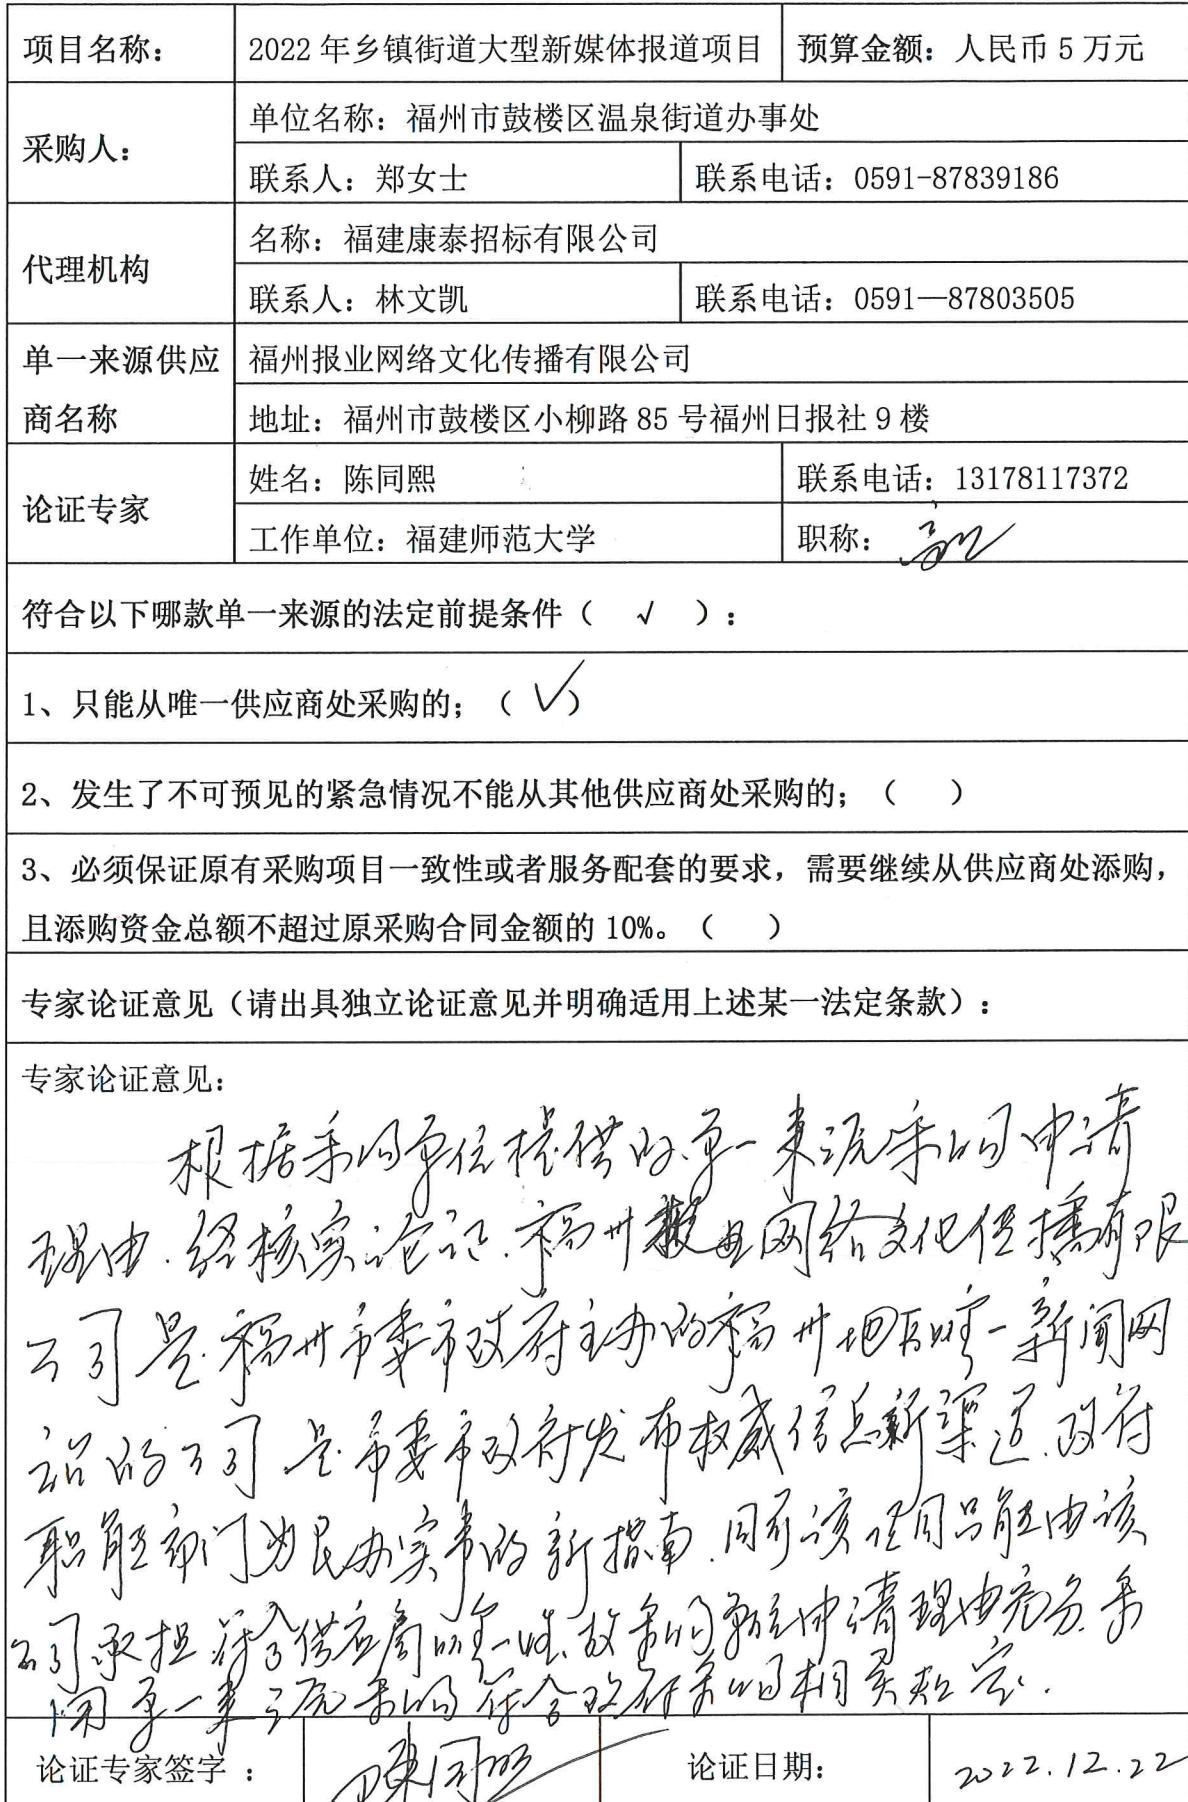 项目名称： 2022 年乡镇街道大型新媒体报道项目 预算金额：人民币 5 万元
采购人：
单位名称：福州市鼓楼区温泉街道办事处
联系人：郑女士 联系电话：0591-87839186
代理机构
名称：福建康泰招标有限公司
联系人：林文凯 联系电话：0591—87803505
单一来源供应
商名称
福州报业网络文化传播有限公司
地址：福州市鼓楼区小柳路 85 号福州日报社 9 楼
论证专家
姓名：陈同熙 联系电话：13178117372
工作单位：福建师范大学 职称：
符合以下哪款单一来源的法定前提条件（ √ ）：
1、只能从唯一供应商处采购的；（ √ ）
2、发生了不可预见的紧急情况不能从其他供应商处采购的；（ ）
3、必须保证原有采购项目一致性或者服务配套的要求，需要继续从供应商处添购，
且添购资金总额不超过原采购合同金额的 10%。（ ）
专家论证意见（请出具独立论证意见并明确适用上述某一法定条款）：
专家论证意见：
根据采购单位提供的单一来源采购申请
理由.经核实论证.福州报业网络文化传播有限
公司是福州市委市政府主办的福州地方唯一新闻网
站的公司 是市委市政府发布权威信息新渠道.政府
职能部门为民办实事的新指南.同时该项目只能由该
公司承担.符合供应商唯一性.故采购单位申请理由充分.采
用单一来源采购符合政府采购相关规定.
论证专家签字 ： 陈同熙 论证日期： 2022.12.22